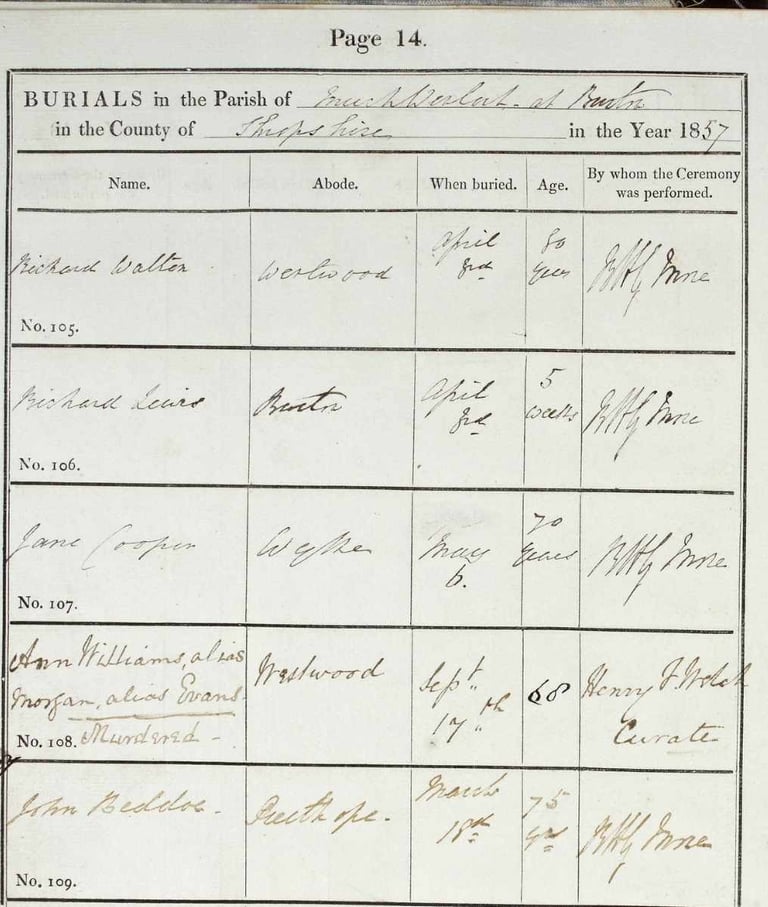 Page 14.
BURIALS in the Parish of Much Wenlock - at Bourton
in the County of Shropshire in the Year 1857
Name. Abode. When buried. Age. By whom the Ceremony was performed.
Richard Walton Westwood April 3rd 80 years
No. 105.
Richard Lewis Bourton April 3rd 5 weeks
No. 106.
Jane Cooper Wyke May 6. 70 years
No. 107.
Ann Williams, alias Westwood Sept 17th 68 Henry F Welch
Morgan, alias Evans Curate
No. 108. Murdered -
John Beddoe - Presthope - March 18th 75 yrs
No. 109.